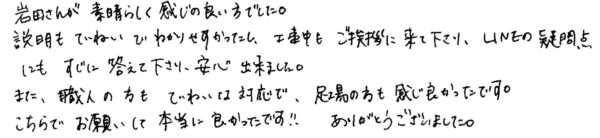 岩田さんが素晴らしく感じの良い方でした。
説明もていねいでわかりやすかったし、工事中もご挨拶に来て下さり、LINEの疑問点
にもすぐに答えて下さり、安心出来ました。
また、職人の方もていねいな対応で、足場の方も感じ良かったです。
こちらでお願いして本当に良かったです!! ありがとうございました。